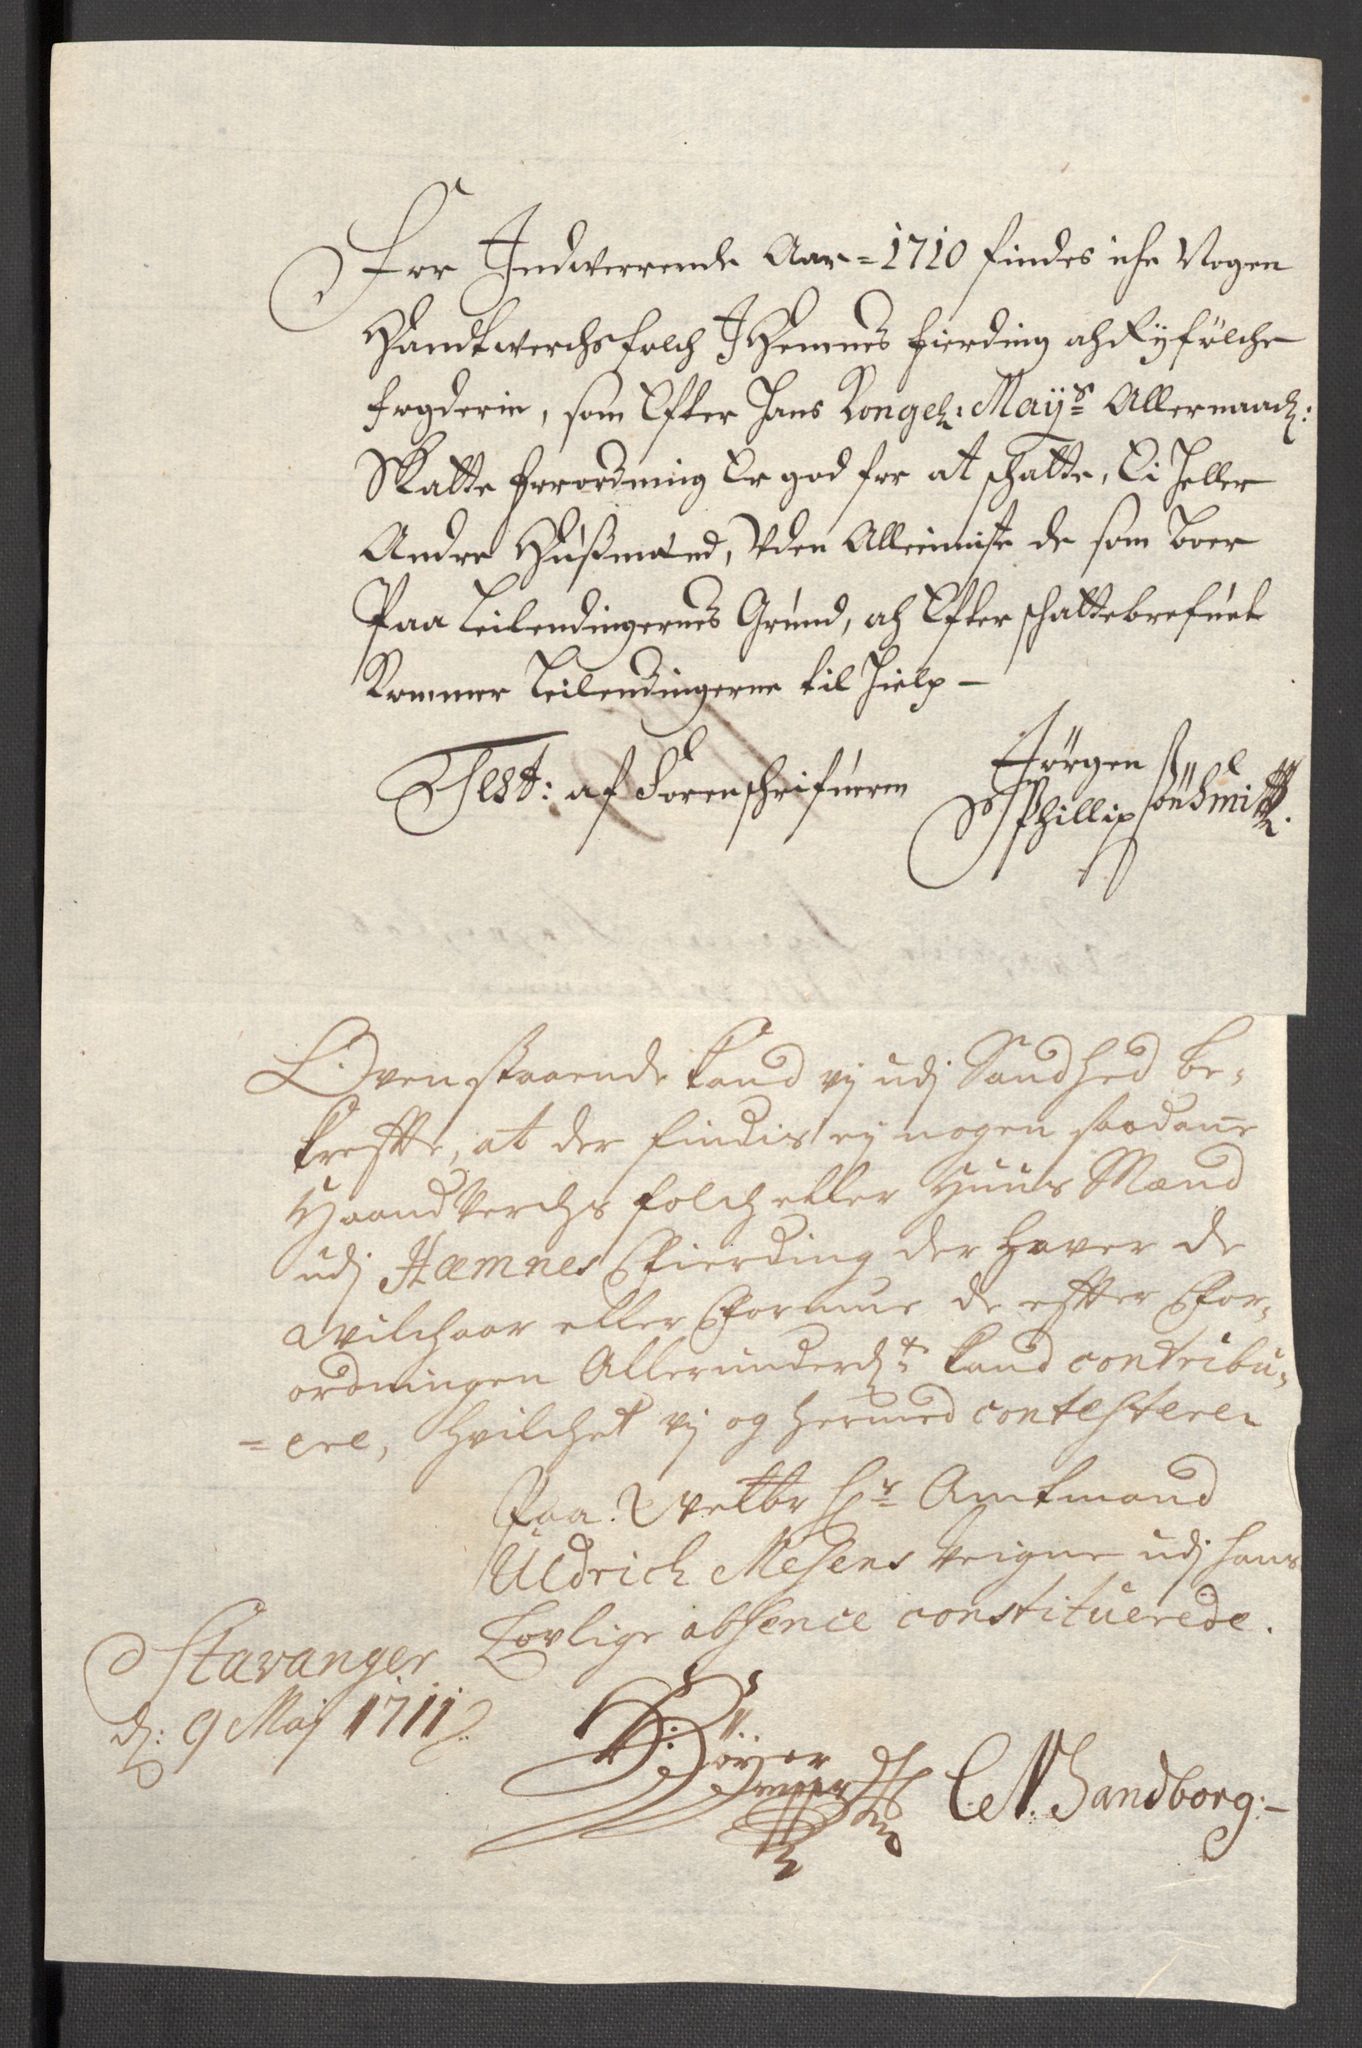 For Indwerrende Aar = 1710 findes iche Nogen
Handtwerchsfolch I Hemnes fierding ah Ryfölche
fogderie, som Efter Hans Kongel: May:s Allernaad:
Skatte forordning Er god for at schatte, Ei Heller
Andre Hußmænd, Uden Alleeniste de som boer
Paa Leilendingernes Grund, oh Efter schattebrefuet
Kommer Leilendingerne til Hielp –
Test: af Sorenschrifueren Jörgen
Phillipsön Smitt.
Ovenstaaende kand vj udj Sandhed be-
krefte, at der findis ej nogen saadane
Haandverchs folch eller Huus Mænd
udj Hæmnes Fierding der haver de
Wilchaar eller Formue de efter For-
ordningen Allerunderd:te kand contribu-
=ere, hvilchet vj og hermed contestere
Paa Velbr Hr Amtmand
Uldrich Mesens Veigne udj hans
Lovlige absence constituerede.
Stavanger
d: 9 Maj 1711
C. N. Sandborg:–